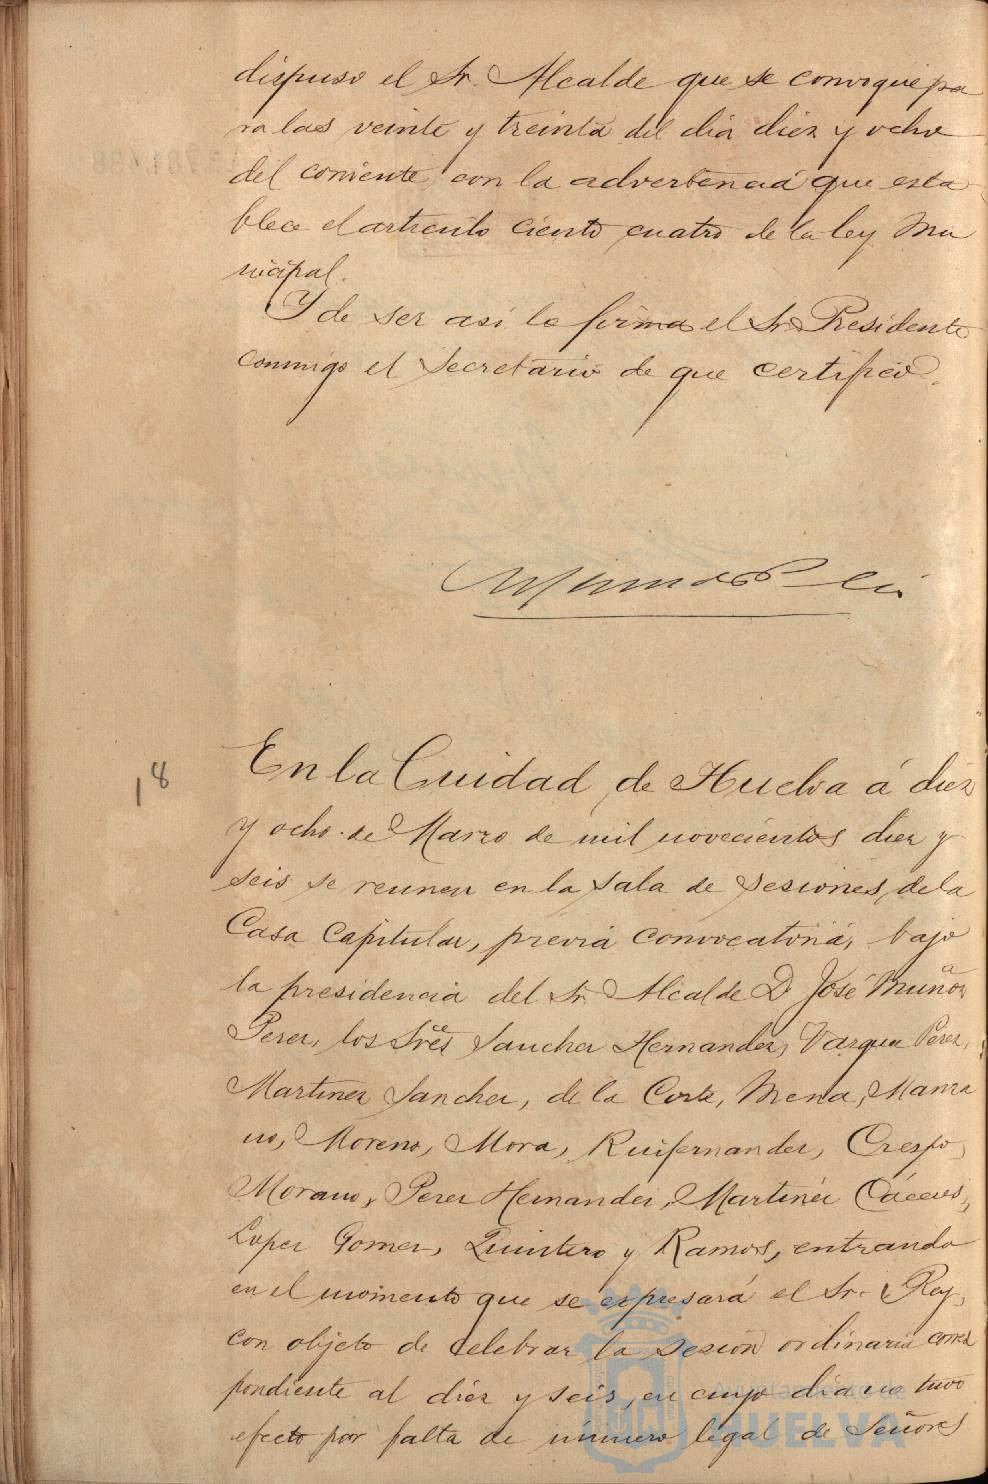 dispuso el Sr. Alcalde que se convoque pa
ra las veinte y treinta del dia diez y ocho
del corriente, con la advertencia que esta
blece el articulo ciento cuatro de la ley Mu
nicipal.
Y de ser asi lo firma el Sr. Presidente
conmigo el Secretario de que certifico.
18
En la Cuidad de Huelva á diez
y ocho de Marzo de mil novecientos diez y
seis se reunen en la sala de sesiones de la
Casa Capitular, previa convocatoria, bajo
la presidencia del Sr. Alcalde D. José Muñoz
Perez, los Sres Sanchez Hernandez, Vazquez Perez,
Martinez Sanchez, de la Corte, Mena, Manza
no, Moreno, Mora, Ruifernandez, Crespo,
Morano, Perez Hernandez, Martinez Cáceres,
Lopez Gomez, Quintero y Ramos, entrando
en el momento que se expresará el Sr. Roy,
con objeto de celebrar la sesion ordinaria corres
pondiente al diez y seis, en cuyo dia no tuvo
efecto por falta de número legal de Señores
Ayuntamiento de
HUELVA